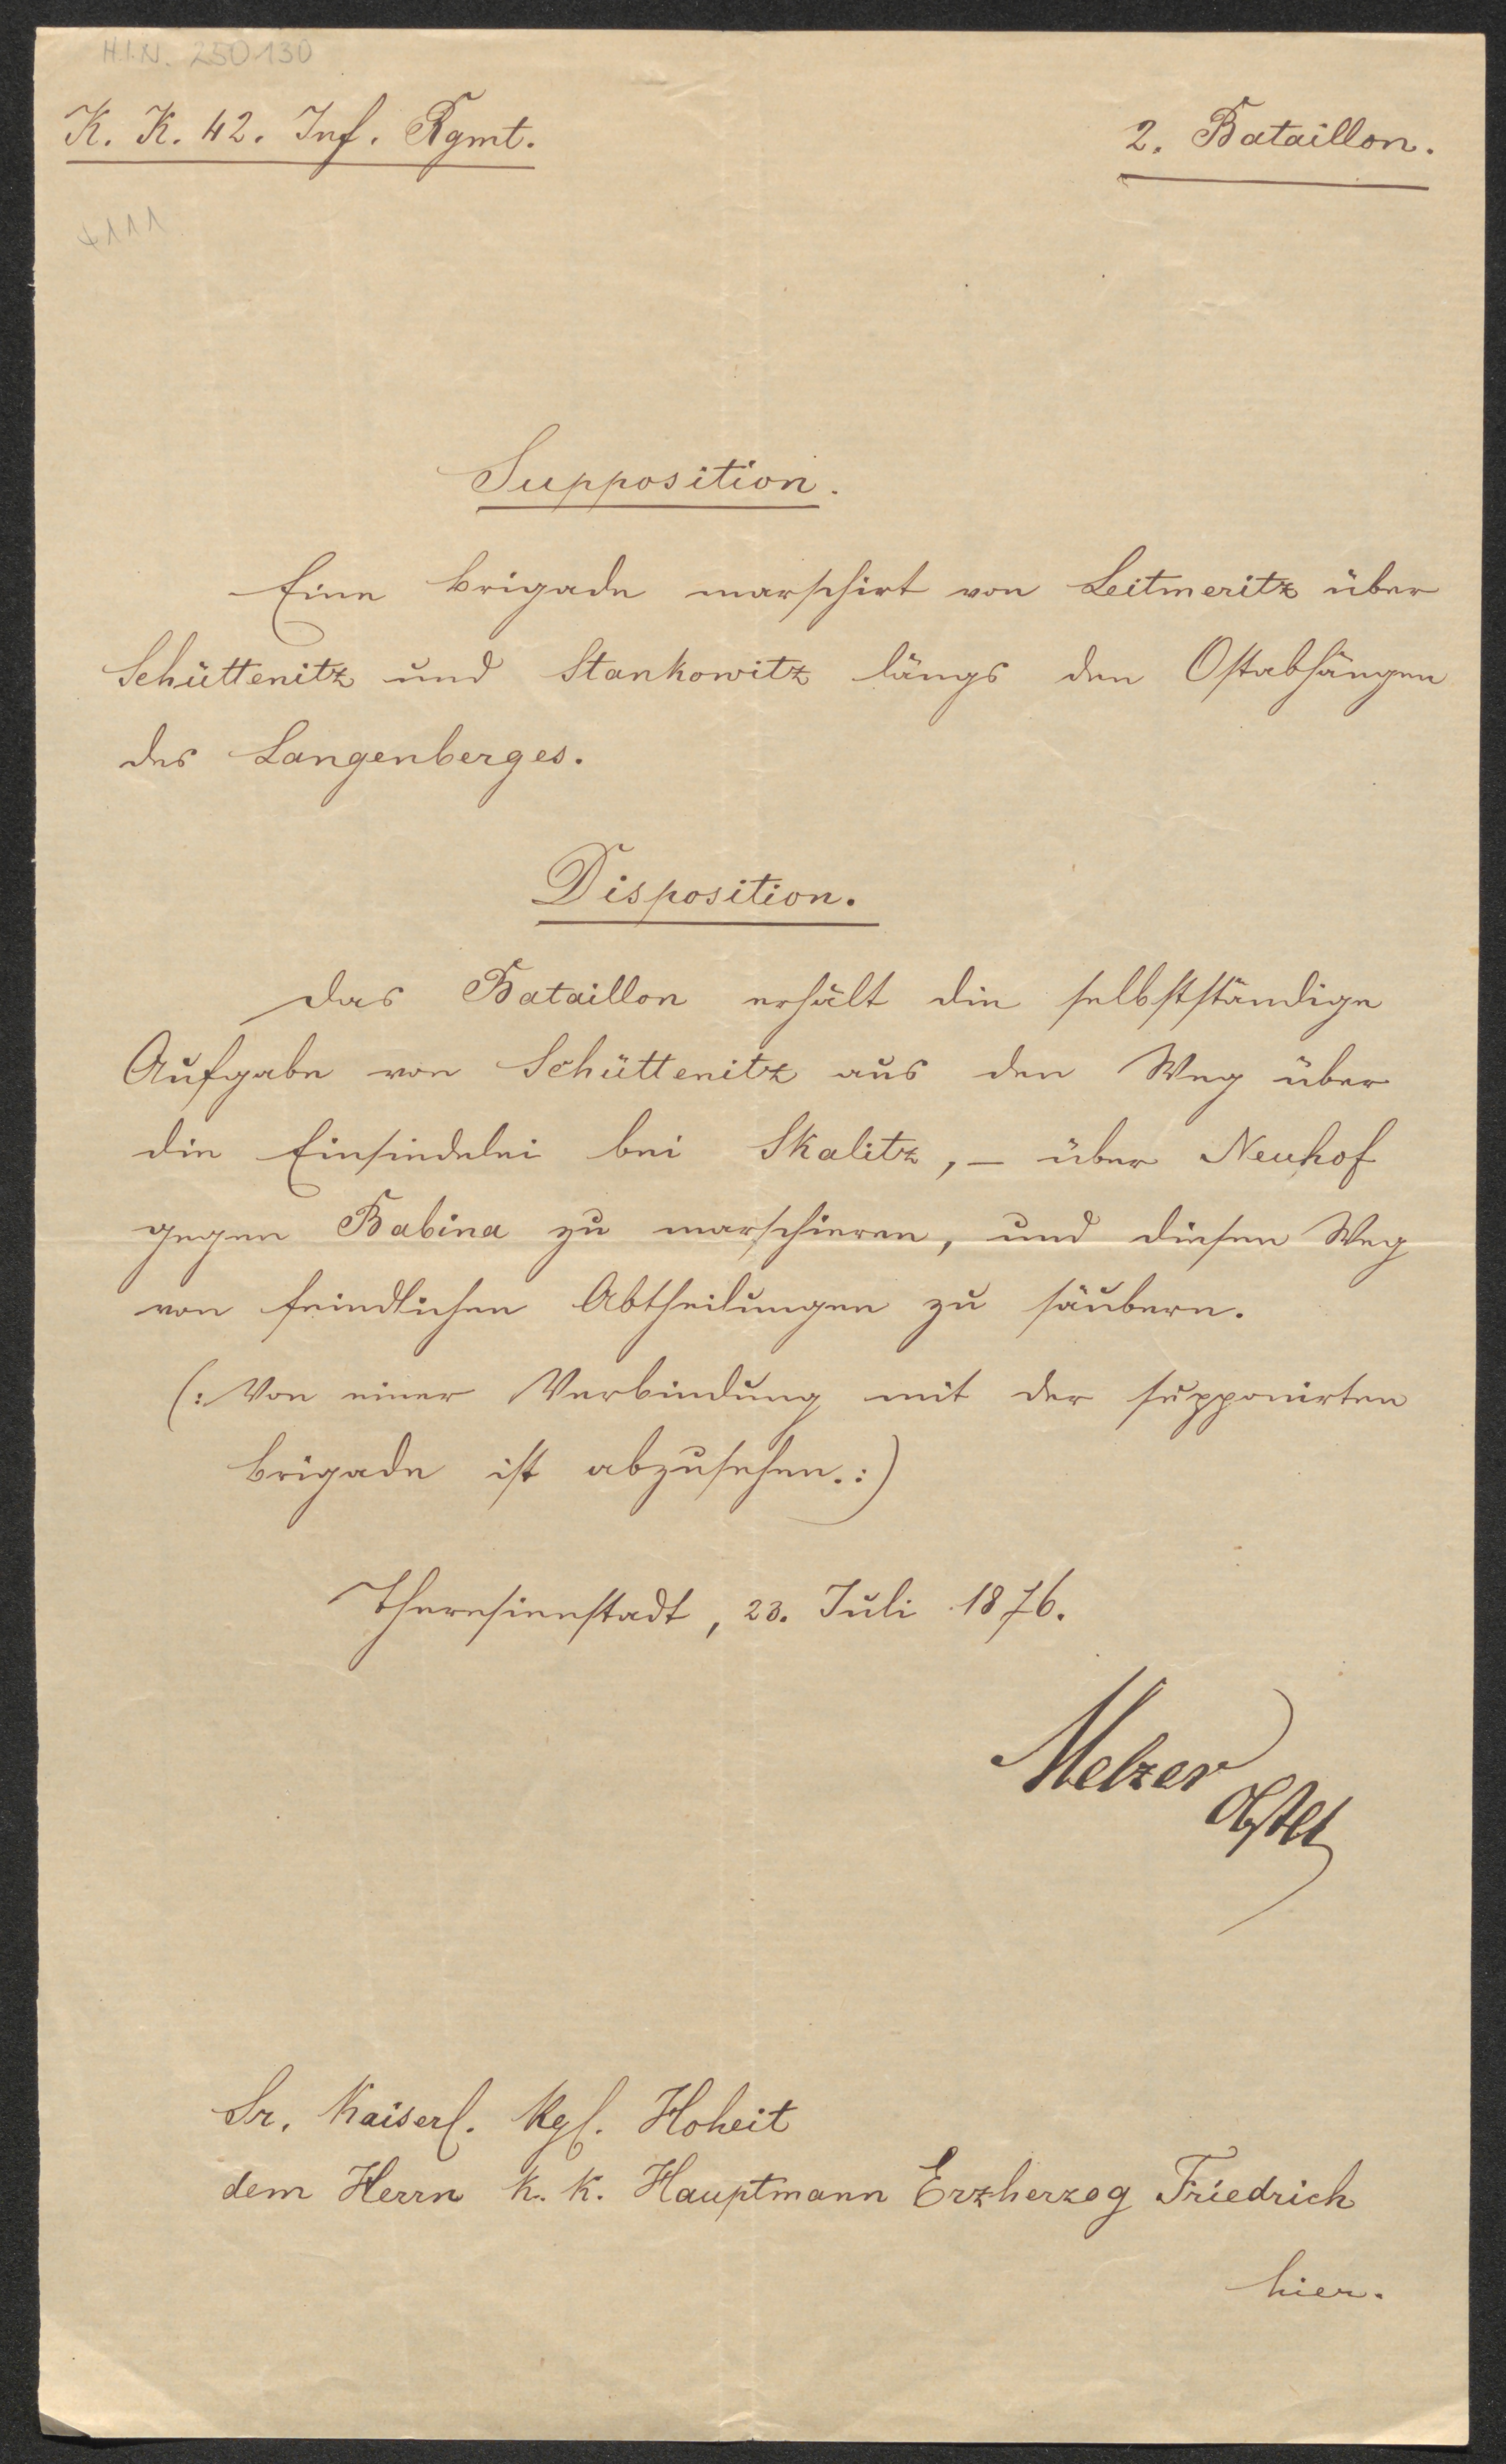 H.I.N. 250130
K. K. 42. Inf. Rgmt.
2. Bataillon.
4111
Supposition.
Eine Brigade marschirt von Leitmeritz über
Schüttenitz und Stankowitz längs den Ostabhängen
des Langenberges.
Disposition.
Das Bataillon erhält die selbstständige
Aufgabe von Schüttenitz aus den Weg über
die Einsiedelei bei Skalitz, – über Neuhof
gegen Babina zu marschieren, und diesen Weg
von feindlichen Abtheilungen zu säubern.
(: Von einer Verbindung mit der supponirten
Brigade ist abzusehen. :)
Theresienstadt, 23. Juli 1876.
Melzer
Obstlt
Sr. Kaiserl. Kgl. Hoheit
dem Herrn K. K. Hauptmann Erzherzog Friedrich
hier.